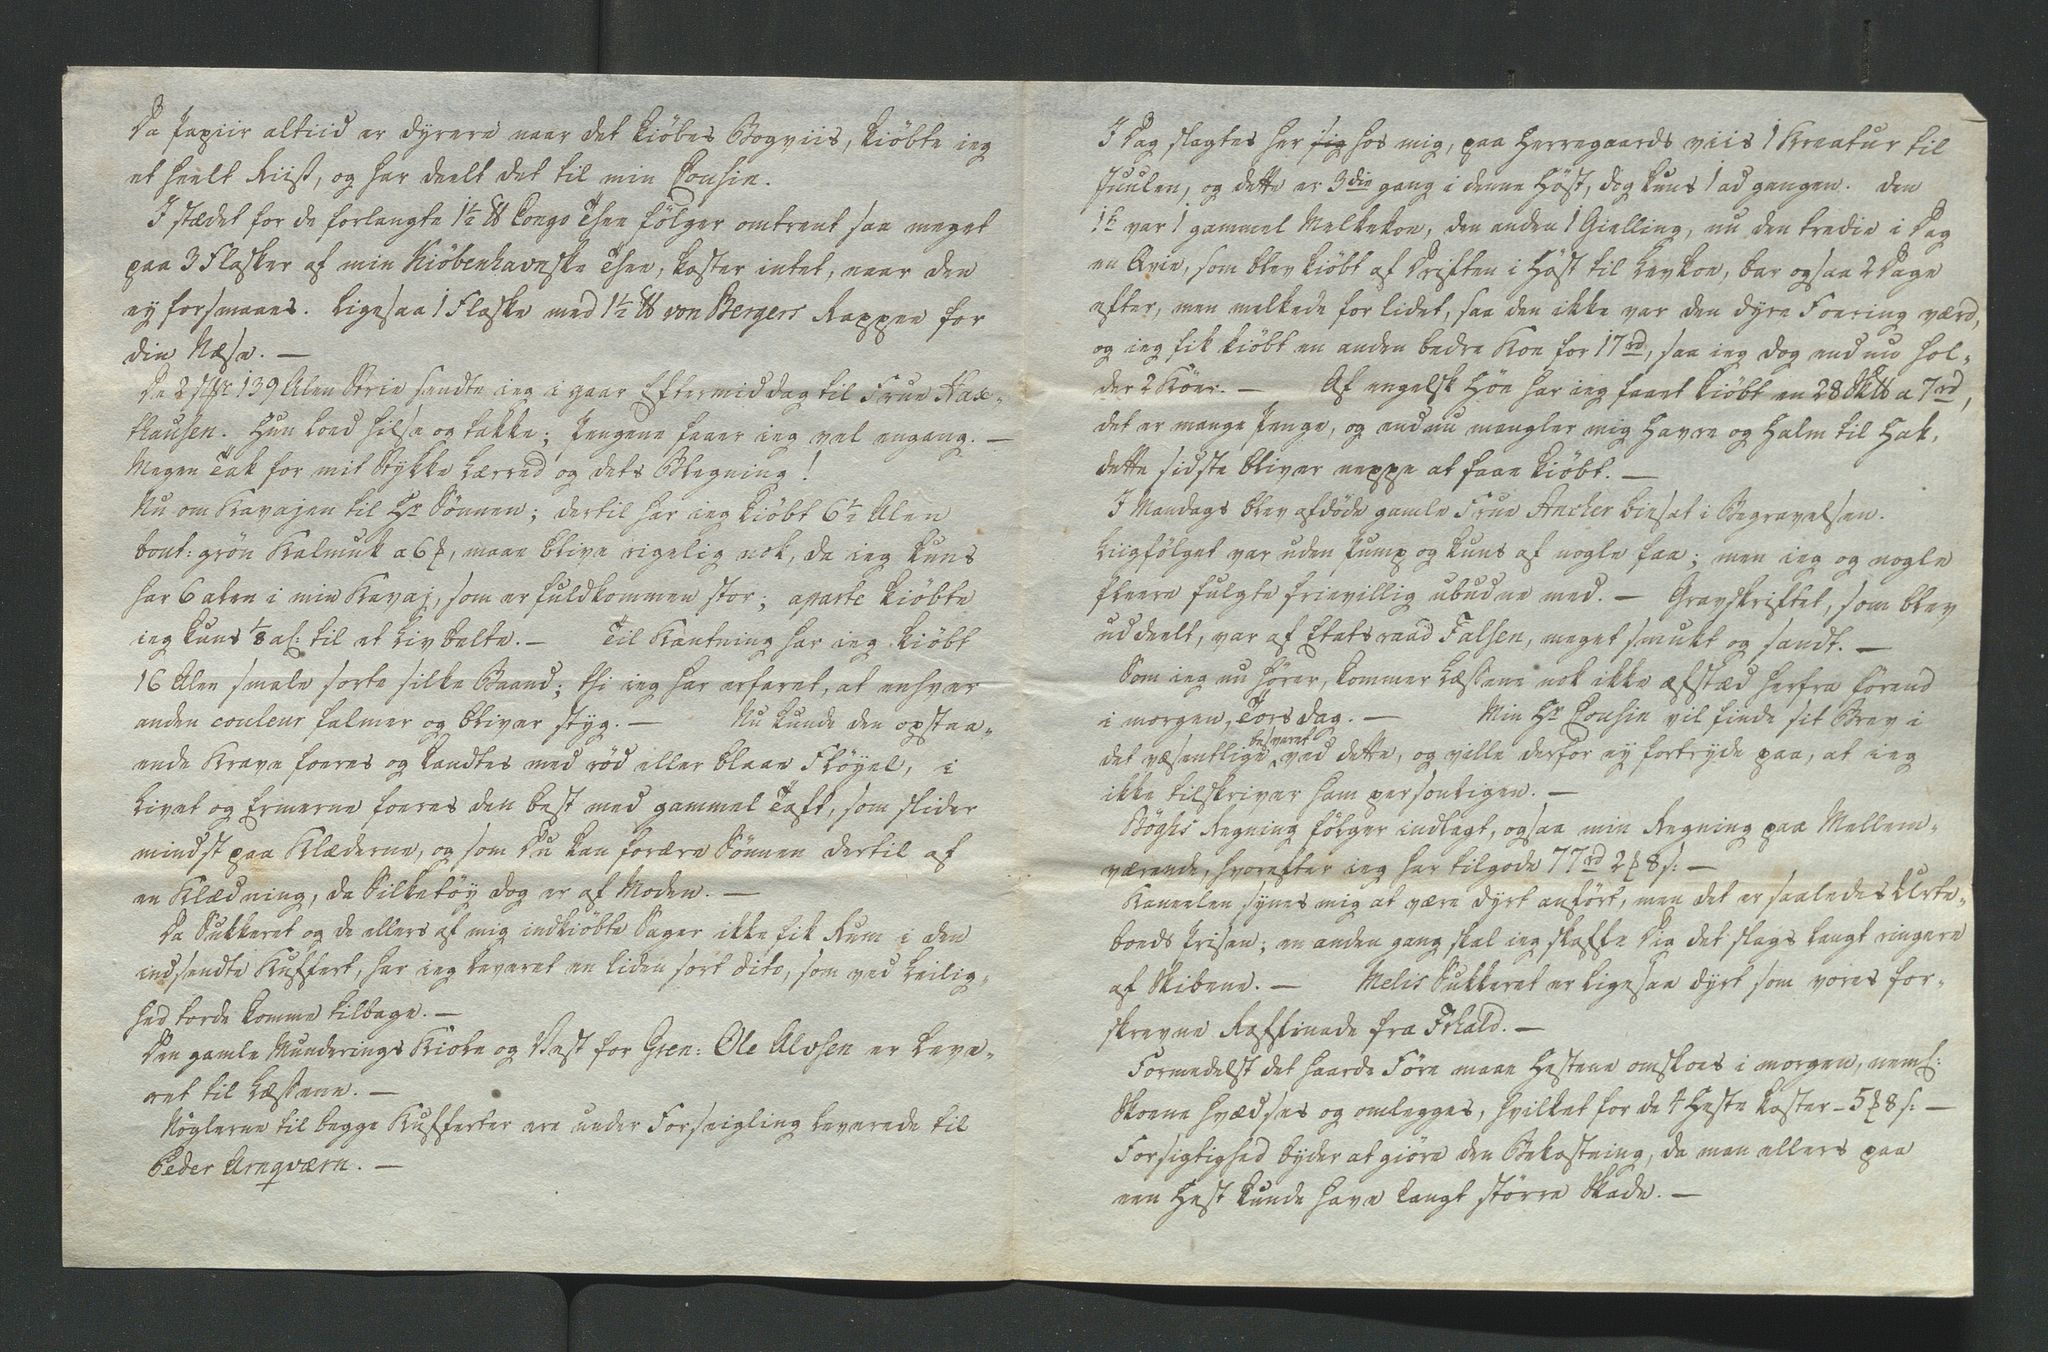 Da Papiir altiid er dyrere naar det kiöbes Bogviis, kiöbte ieg
et heelt Riisß, og har deelt det til min Cousin.
I stædet for de forlangte 1½ ℔ Congo Thee fölger omtrent saa meget
paa 3 Flasker af min Kiöbenhavnske Thee, koster intet, naar den
ey forsmaaes. Ligesaa 1 Flaske med 1½ ℔ von Bergers Rappee for
din Næse. —
De 2 139 Alen Strie sendte ieg i gaar Eftermiddag til Frue Hax-
thausen. Hun loed hilse og takke; Pengene faaer ieg vel engang. —
Megen Tak for mit Stykke Lærred og dets Blegning!
Nu om Kavajen til Hr Sönnen; dertil har ieg kiöbt 6½ Alen
bout: grön Kalmuk a 6 ꝑ, maae blive rigelig nok, da ieg kuns
har 6 alen i min Kavaj, som er fuldkommen stor; aparte kiöbte
ieg kuns ⅛ al: til et Livbelte. — Til Kantning har ieg kiöbt
16 Alen smale sorte silke Baand; thi ieg har erfaret, at enhver
anden couleur falmer og bliver styg. — Nu kunde den opstaa-
ende Krave foeres og kandtes med röd eller blaae Flöyel, i
Livet og Ermerne foeres den best med gammel Taft, som slider
mindst paa Klæderne, og som Du kan forære Sönnen dertil af
en Klædning, da Silketöy dog er af Moden. —
Da Sukkeret og de ellers af mig indkiöbte Sager ikke fik Rum i den
indsendte Kuffert, har ieg leveret en liden sort dito, som ved Leilig-
hed torde komme tilbage. —
Den gamle Munderings Kiole og Vest for Gren: Ole Alvsen er leve-
ret til Læssene. —
Nöglerne til begge Kufferter ere under Forseigling leverede til
Peder Arnqværn. —
I Dag slagtes her sig hos mig, paa Herregaards viis 1 Kreatur til
Juulen, og dette er 3die gang i denne Höst, dog kuns 1 ad gangen. Den
1te var 1 gammel Melkekoe, den anden 1 Gielling, nu den tredie i Dag
en Qvie, som blev kiöbt af Driften i Höst til Levkoe, bar ogsaa 2 Dage
efter, men melkede for lidet, saa den ikke var den dyre Foering værd,
og ieg fik kiöbt en anden bedre Koe for 17 rd, saa ieg dog endnu hol-
der 2 Köer. — Af engelsk Höe har ieg faaet kiöbt en 28 Sk℔ a 7 rd,
det er mange Penge, og endnu mangler mig Havre og Halm til Hak,
dette sidste bliver neppe at faae kiöbt. —
I Mandags blev afdöde gamle Frue Ancher biesat i Begravelsen.
Liigfölget var uden Pomp og kuns af nogle faa; men ieg og nogle
fleere fulgte frievillig ubudne med. — Gravskriftet, som blev
uddeelt, var af Etatsraad Falsen, meget smukt og sandt. —
Som ieg nu hörer, kommer Læssene nok ikke afstæd herfra förend
i morgen, Torsdag. — Min Hr Cousin vil finde sit Brev i
det væsentlige besvaret ved dette, og ville derfor ey fortryde paa, at ieg
ikke tilskriver ham personligen. —
Böghs Regning fölger indlagt, ogsaa min Regning paa Mellem-
værende, hvorefter ieg har tilgode 77 rd 2 ꝑ 8 s: —
Kaneelen synes mig at være dyrt anfört, men det er saaledes Urte-
boeds Prisen; en anden gang skal ieg skaffe Dig det slags langt ringere
af Skibene. — Melis Sukkeret er ligesaa dyrt som vores for-
skrevne Raffinade fra Frhald. —
Formedelst det haarde Före maae Hestene omskoes i morgen, neml:
Skoene hvædses og omlegges, hvilket for de 4 Heste koster - 5 ꝑ 8 s: —
Forsigtighed byder at giöre den Bekostning, da man ellers paa
een Hest kunde have langt större Skade. —